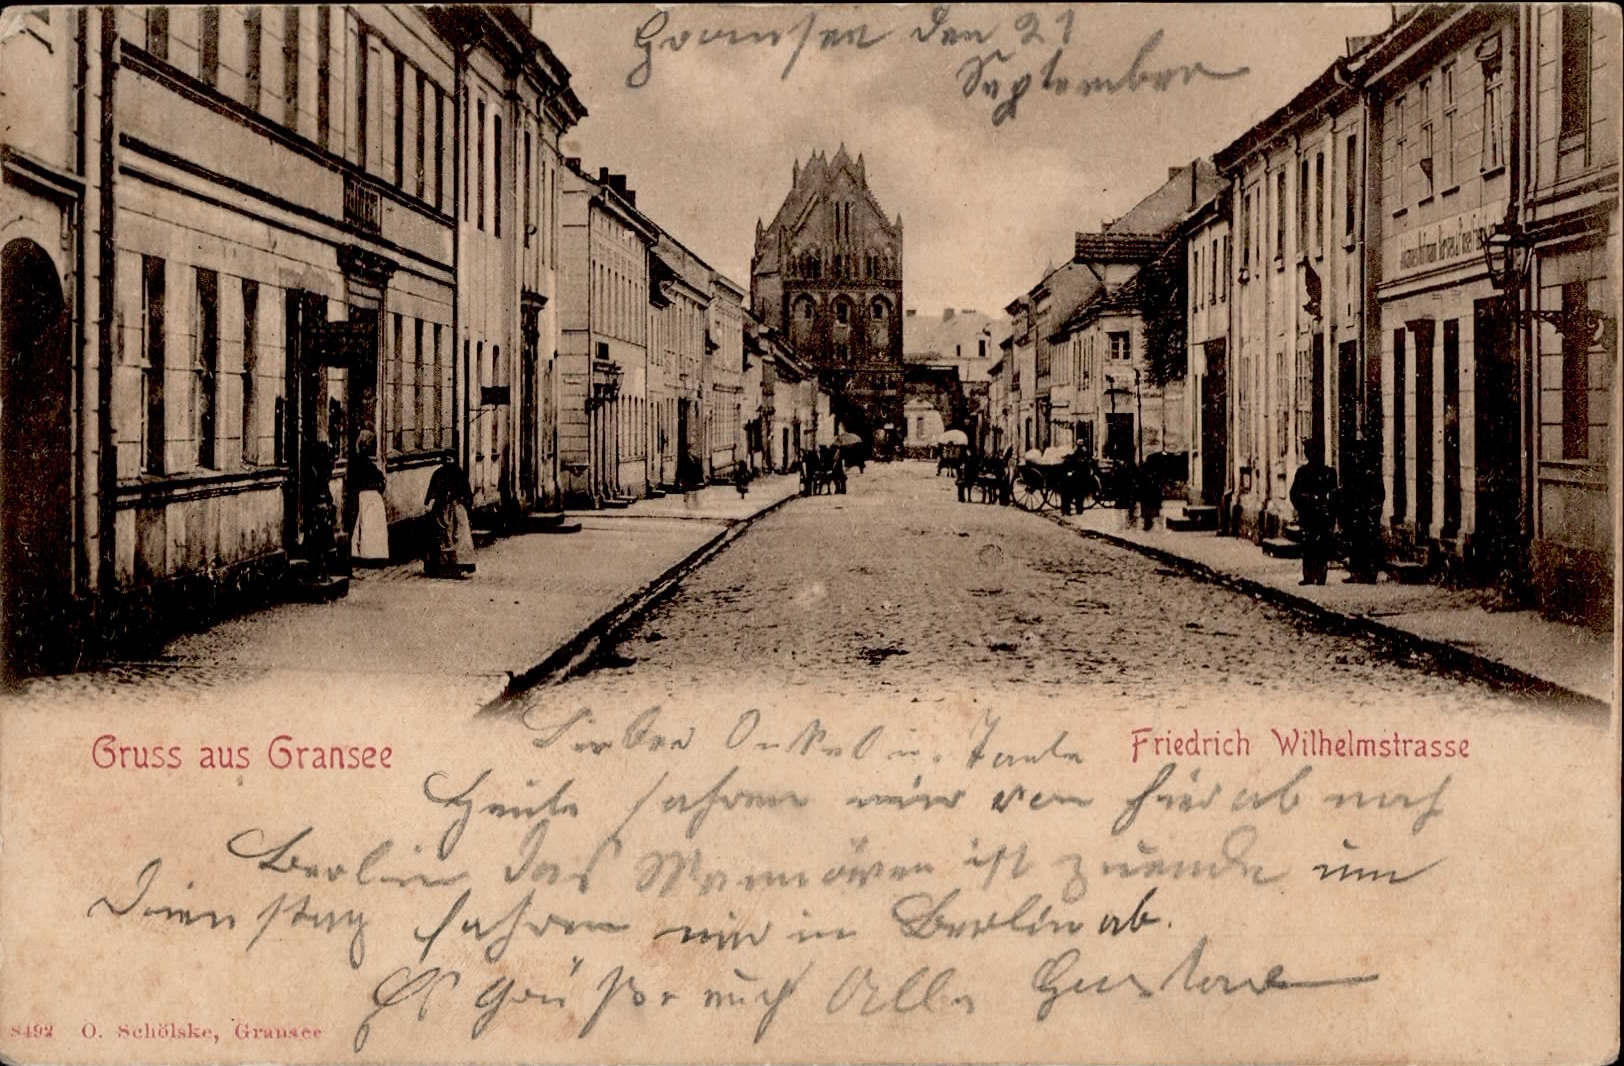 Gransee den 21
September
Gruss aus Gransee
Friedrich Wilhelmstrasse
Lieber Onkel u. Tante
Heute fahren wir von hier ab nach
Berlin das Manöver ist zuende um
Dienstag fahren wir in Berlin ab.
Es grüßt euch Alle Gustav
8492 O. Schölske, Gransee